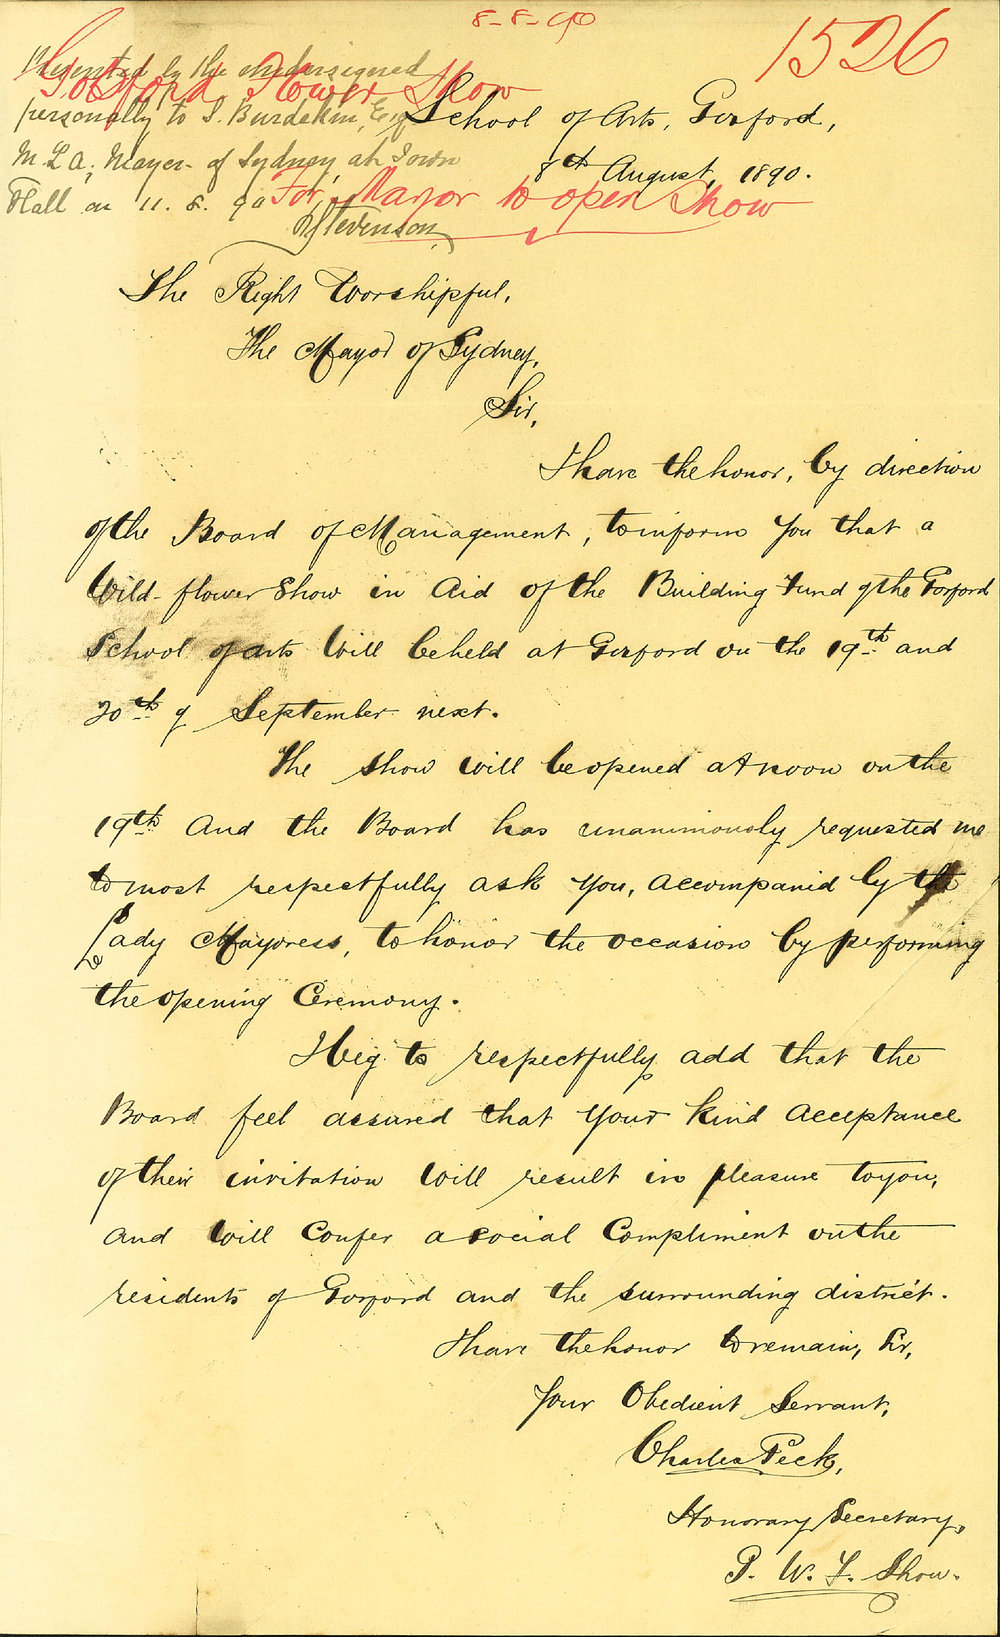 8-8-90
1526
Gosford Flower Show
Presented by the undersigned
personally to S. Burdekin, Esq
M.L.A; Mayor of Sydney, at Town
Hall on 11. 8. 90
Stevenson
For Mayor to open Show
School of Arts, Gosford,
8th August, 1890.
The Right Worshipful,
The Mayor of Sydney,
Sir,
I have the honor, by direction
of the Board of Management, to inform you that a
Wild-flower Show in Aid of the Building Fund of the Gosford
School of Arts will be held at Gosford on the 19th and
20th of September next.
The show will be opened at noon on the
19th and the Board has unanimously requested me
to most respectfully ask you, accompanied by the
Lady Mayoress, to honor the occasion by performing
the opening Ceremony.
I beg to respectfully add that the
Board feel assured that your kind acceptance
of their invitation will result in pleasure to you,
and will confer a social compliment on the
residents of Gosford and the surrounding district.
I have the honor to remain, Sir,
Your Obedient Servant,
Charles Peck,
Honorary Secretary,
G. W. F. Show.